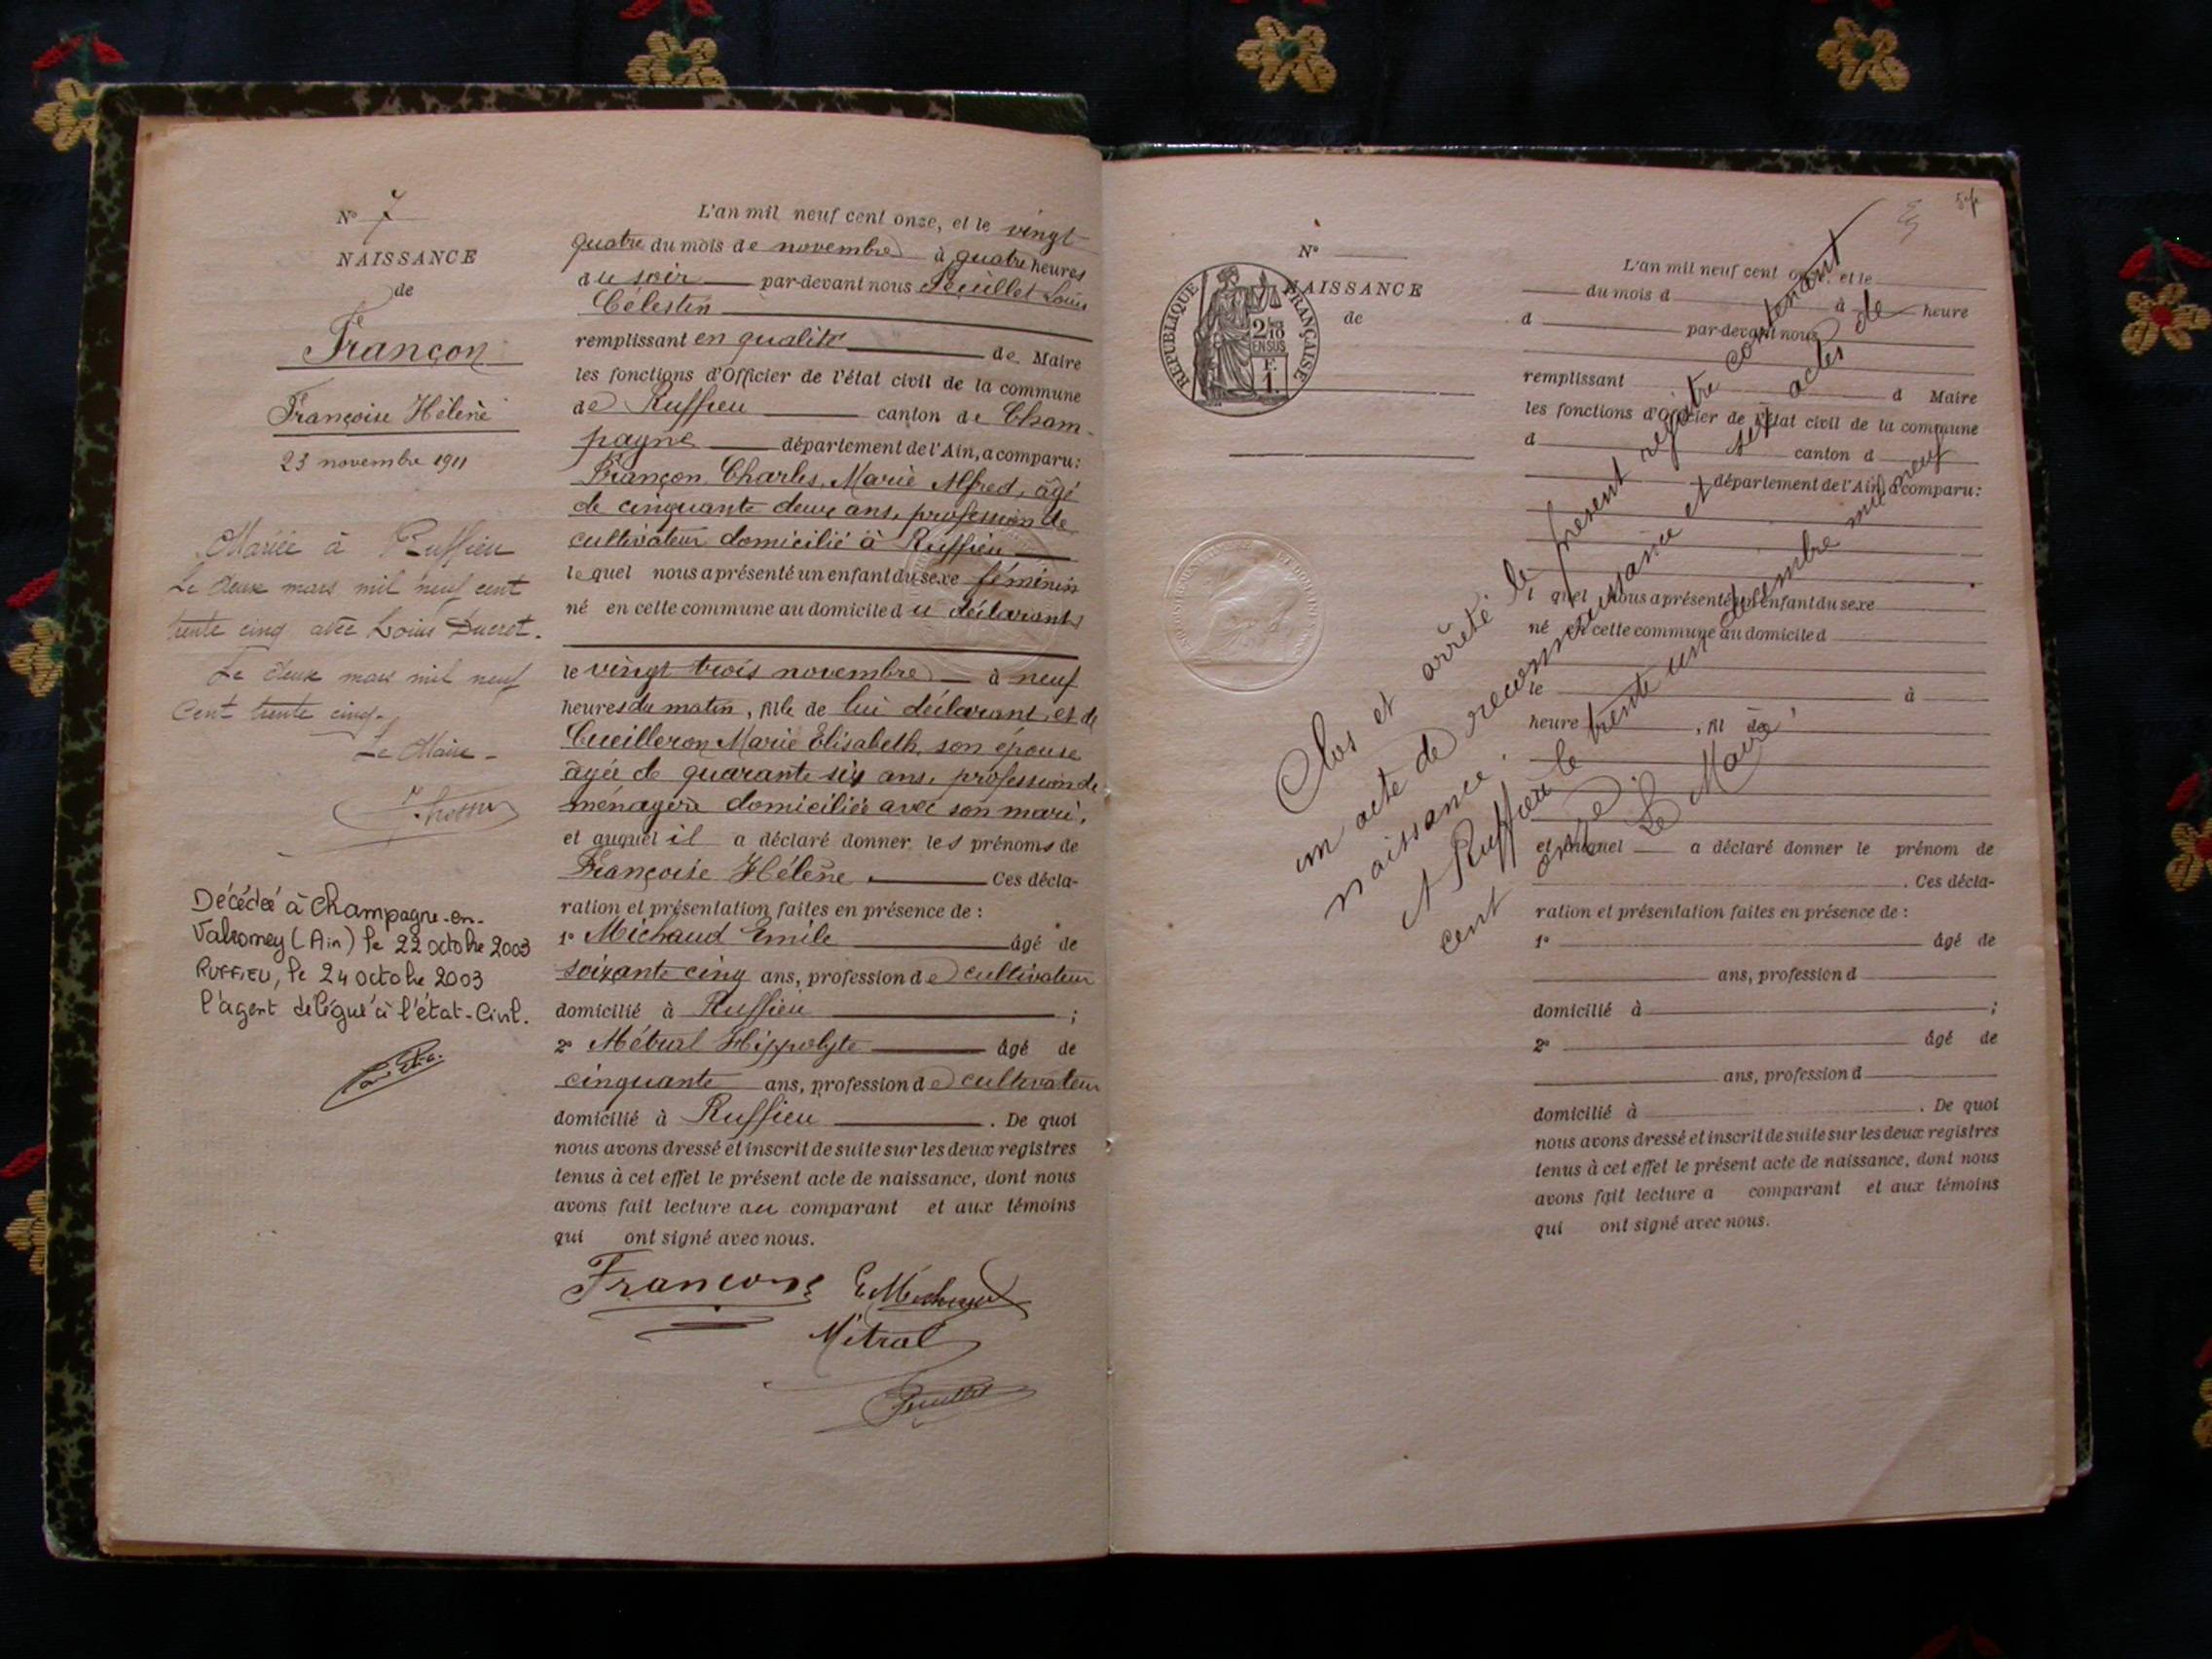 N° 7
NAISSANCE
de
Françon
Françoise Hélène
23 novembre 1911
Mariée à Ruffieu
Le deux mars mil neuf cent
trente cinq avec Louis Ducret.
Le deux mars mil neuf
Cent trente cinq.
Le Maire -
Décédée à Champagne-en-
Valromey (Ain) le 22 octobre 2003
RUFFIEU, le 24 octobre 2003
l'agent délégué à l'état-Civil.
L'an mil neuf cent onze, et le vingt
quatre du mois de novembre à quatre heures
du soir par-devant nous Feuillet Louis
Célestin
remplissant en qualité de Maire
les fonctions d'Officier de l'état civil de la commune
de Ruffieu canton de Cham-
pagne département de l'Ain, a comparu:
Françon Charles, Marie Alfred, âgé
de cinquante deux ans, profession de
cultivateur domicilié à Ruffieu
lequel nous a présenté un enfant du sexe féminin
né en cette commune au domicile du déclarant
le vingt trois novembre à neuf
heures du matin, fille de lui déclarant et de
Cueilleron Marie Elisabeth, son épouse
âgée de quarante six ans, profession de
ménagère domiciliée avec son mari,
et auquel il a déclaré donner les prénoms de
Françoise Hélène Ces décla-
ration et présentation faites en présence de :
1° Michaud Emile âgé de
soixante cinq ans, profession de cultivateur
domicilié à Ruffieu ;
2° Métral Hippolyte âgé de
cinquante ans, profession de cultivateur
domicilié à Ruffieu . De quoi
nous avons dressé et inscrit de suite sur les deux registres
tenus à cet effet le présent acte de naissance, dont nous
avons fait lecture au comparant et aux témoins
qui ont signé avec nous.
Françon E Michaud
Métral
Feuillet
54
N°
NAISSANCE
de
RÉPUBLIQUE FRANÇAISE
2/10
EN SUS
F.
1.
L'an mil neuf cent onze, et le
du mois d à heure
d par-devant nous
remplissant d Maire
les fonctions d'Officier de l'état civil de la commune
d canton d
département de l'Ain, a comparu:
l quel nous a présenté un enfant du sexe
né en cette commune au domicile d
le à
heure , fil de
et auquel a déclaré donner le prénom de
. Ces décla-
ration et présentation faites en présence de :
1° âgé de
ans, profession d
domicilié à ;
2° âgé de
ans, profession d
domicilié à . De quoi
nous avons dressé et inscrit de suite sur les deux registres
tenus à cet effet le présent acte de naissance, dont nous
avons fait lecture a comparant et aux témoins
qui ont signé avec nous.
Clos et arrêté le présent registre contenant
un acte de reconnaissance et sept actes de
naissance.
A Ruffieu le trente un décembre mil neuf
cent onze.
Le Maire